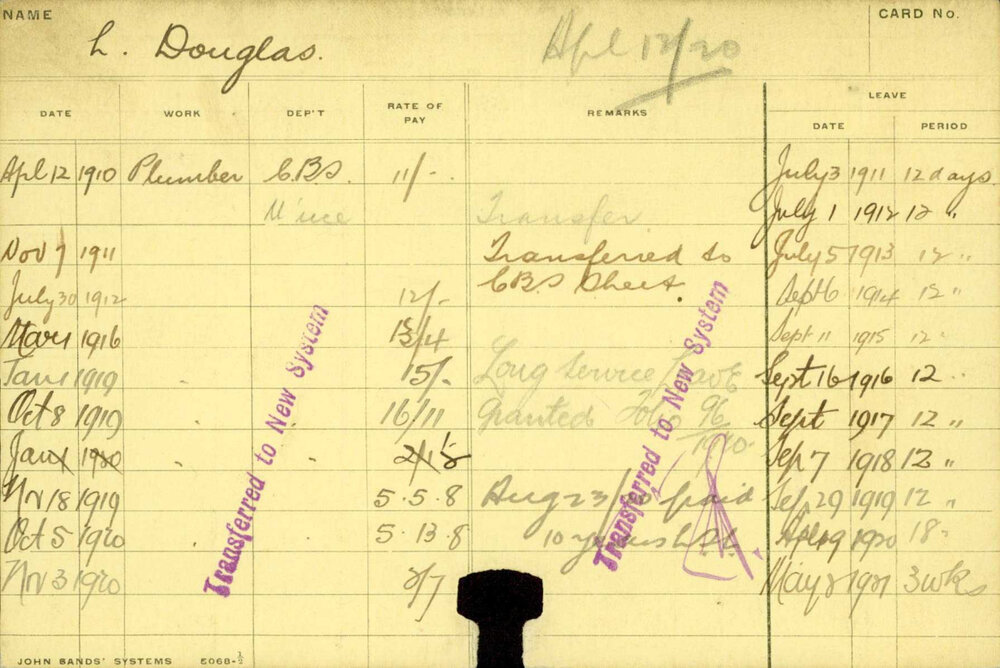 NAME
CARD No.
L. Douglas.
Apl 12/20
DATE WORK DEP'T RATE OF PAY REMARKS LEAVE
DATE PERIOD
Apl 12 1910 Plumber C.B.S. 11/-. July 3 1911 12 days.
Transfer July 1 1912 12 "
Nov 7 1911 Transferred to July 5 1913 12 "
July 30 1912 12/- C.B.S Sheet. Sept 6 1914 12 "
Mar 1 1916 13/4 Sept 11 1915 12 "
Jan 1 1919 15/- Long Service Leave Sept 16 1916 12 "
Oct 8 1919 16/11 Granted Folio 96 Sept 1917 12 "
1920
Jan 1920 Sep 7 1918 12 "
Nov 18 1919 5.5.8 Aug 23/20 paid Sep 29 1919 12 "
Oct 5 1920 5.13.8 10 years 1920 18 "
Nov 3 1920 2/7 May 2 1921 3 wks
Transferred to New System
Transferred to New System
JOHN SANDS' SYSTEMS 5068-½